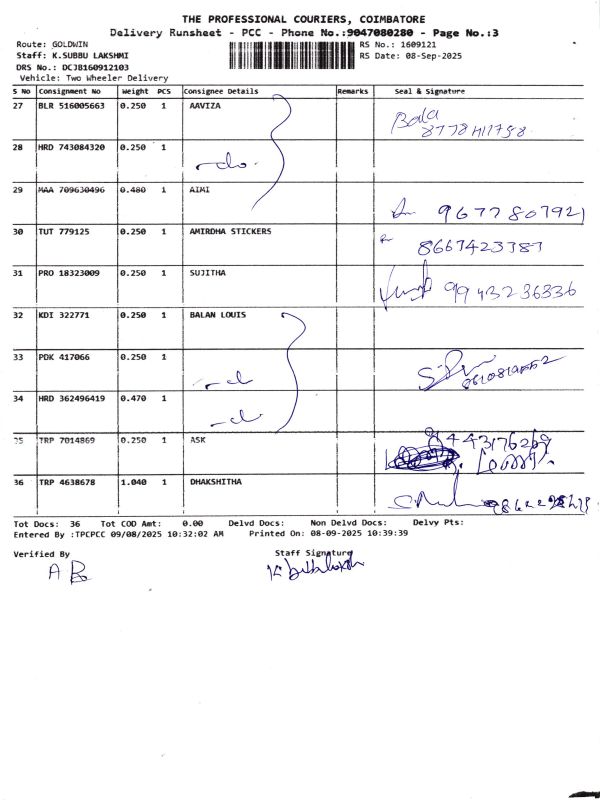 THE PROFESSIONAL COURIERS, COIMBATORE
Delivery Runsheet - PCC - Phone No.:9047080280 - Page No.:3
Route: GOLDWIN RS No.: 1609121
Staff: K.SUBBU LAKSHMI RS Date: 08-Sep-2025
DRS No.: DCJB160912103
Vehicle: Two Wheeler Delivery
S No Consignment No Weight PCS Consignee Details Remarks Seal & Signature
27 BLR 516005663 0.250 1 AAVIZA Bala
28 HRD 743084320 0.250 1 -do-
29 MAA 709630496 0.480 1 AIMI 9677807921
30 TUT 779125 0.250 1 AMIRDHA STICKERS 8667423387
31 PRO 18323009 0.250 1 SUJITHA 9943236336
32 KDI 322771 0.250 1 BALAN LOUIS
33 PDK 417066 0.250 1
34 HRD 362496419 0.470 1
35 TRP 7014869 0.250 1 ASK
36 TRP 4638678 1.040 1 DHAKSHITHA
Tot Docs: 36 Tot COD Amt: 0.00 Delvd Docs: Non Delvd Docs: Delvy Pts:
Entered By :TPCPCC 09/08/2025 10:32:02 AM Printed On: 08-09-2025 10:39:39
Verified By Staff Signature